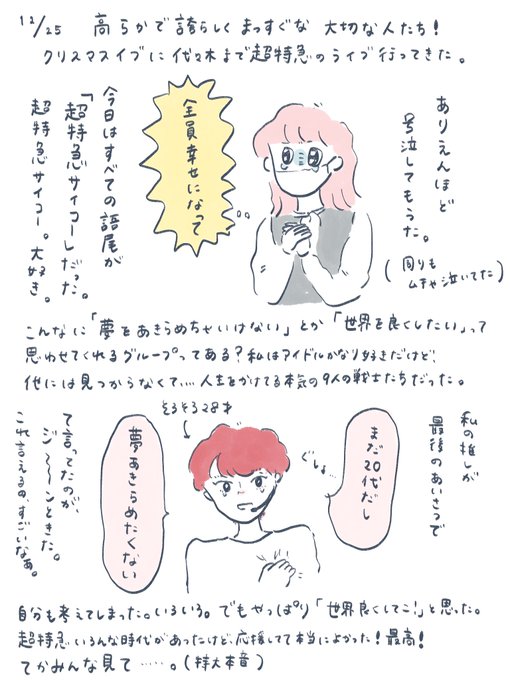 12/25 高らかで誇らしくまっすぐな 大切な人たち！
クリスマスイブに代々木まで超特急のライブ行ってきた。
ありえんほど
号泣してもうた。
(周りも
ムチャ泣いてた)
全員幸せになって
今日はすべての語尾が
「超特急サイコー」だった。
超特急サイコー。大好き。
こんなに「夢をあきらめちゃいけない」とか「世界を良くしたい」って
思わせてくれるグループってある？私はアイドルかなり好きだけど、
他には見つからなくて…. 人生をかけてる本気の9人の戦士たちだった。
私の推しが
最後のあいさつで
まだ20代だし
ぐしょ…
そろそろ28才
夢あきらめたくない
て言ってたのが、
ジ〜〜〜ンときた。
これ言えるの、すごいなぁ。
自分も考えてしまった。いろいろ。でもやっぱり「世界良くしてこ!」と思った。
超特急いろんな時代があったけど、応援してて本当によかった！最高！
てかみんな見て……。(特大本音)